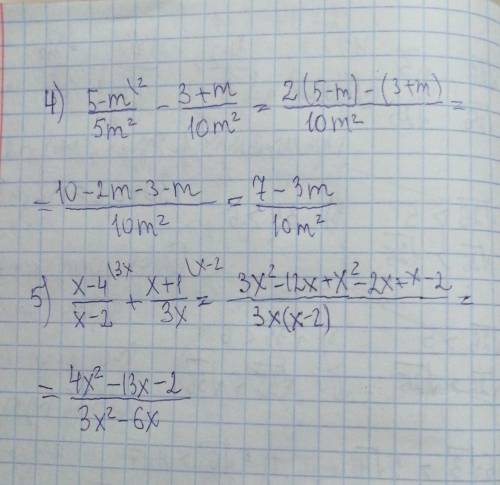 4) \frac{5-m^{\backslash 2}}{5m^2} - \frac{3+m}{10m^2} = \frac{2(5-m)-(3+m)}{10m^2} =
= \frac{10-2m-3-m}{10m^2} = \frac{7-3m}{10m^2}
5) \frac{x-4^{\backslash 3x}}{x-2} + \frac{x+1^{\backslash x-2}}{3x} = \frac{3x^2-12x+x^2-2x+x-2}{3x(x-2)} =
= \frac{4x^2-13x-2}{3x^2-6x}